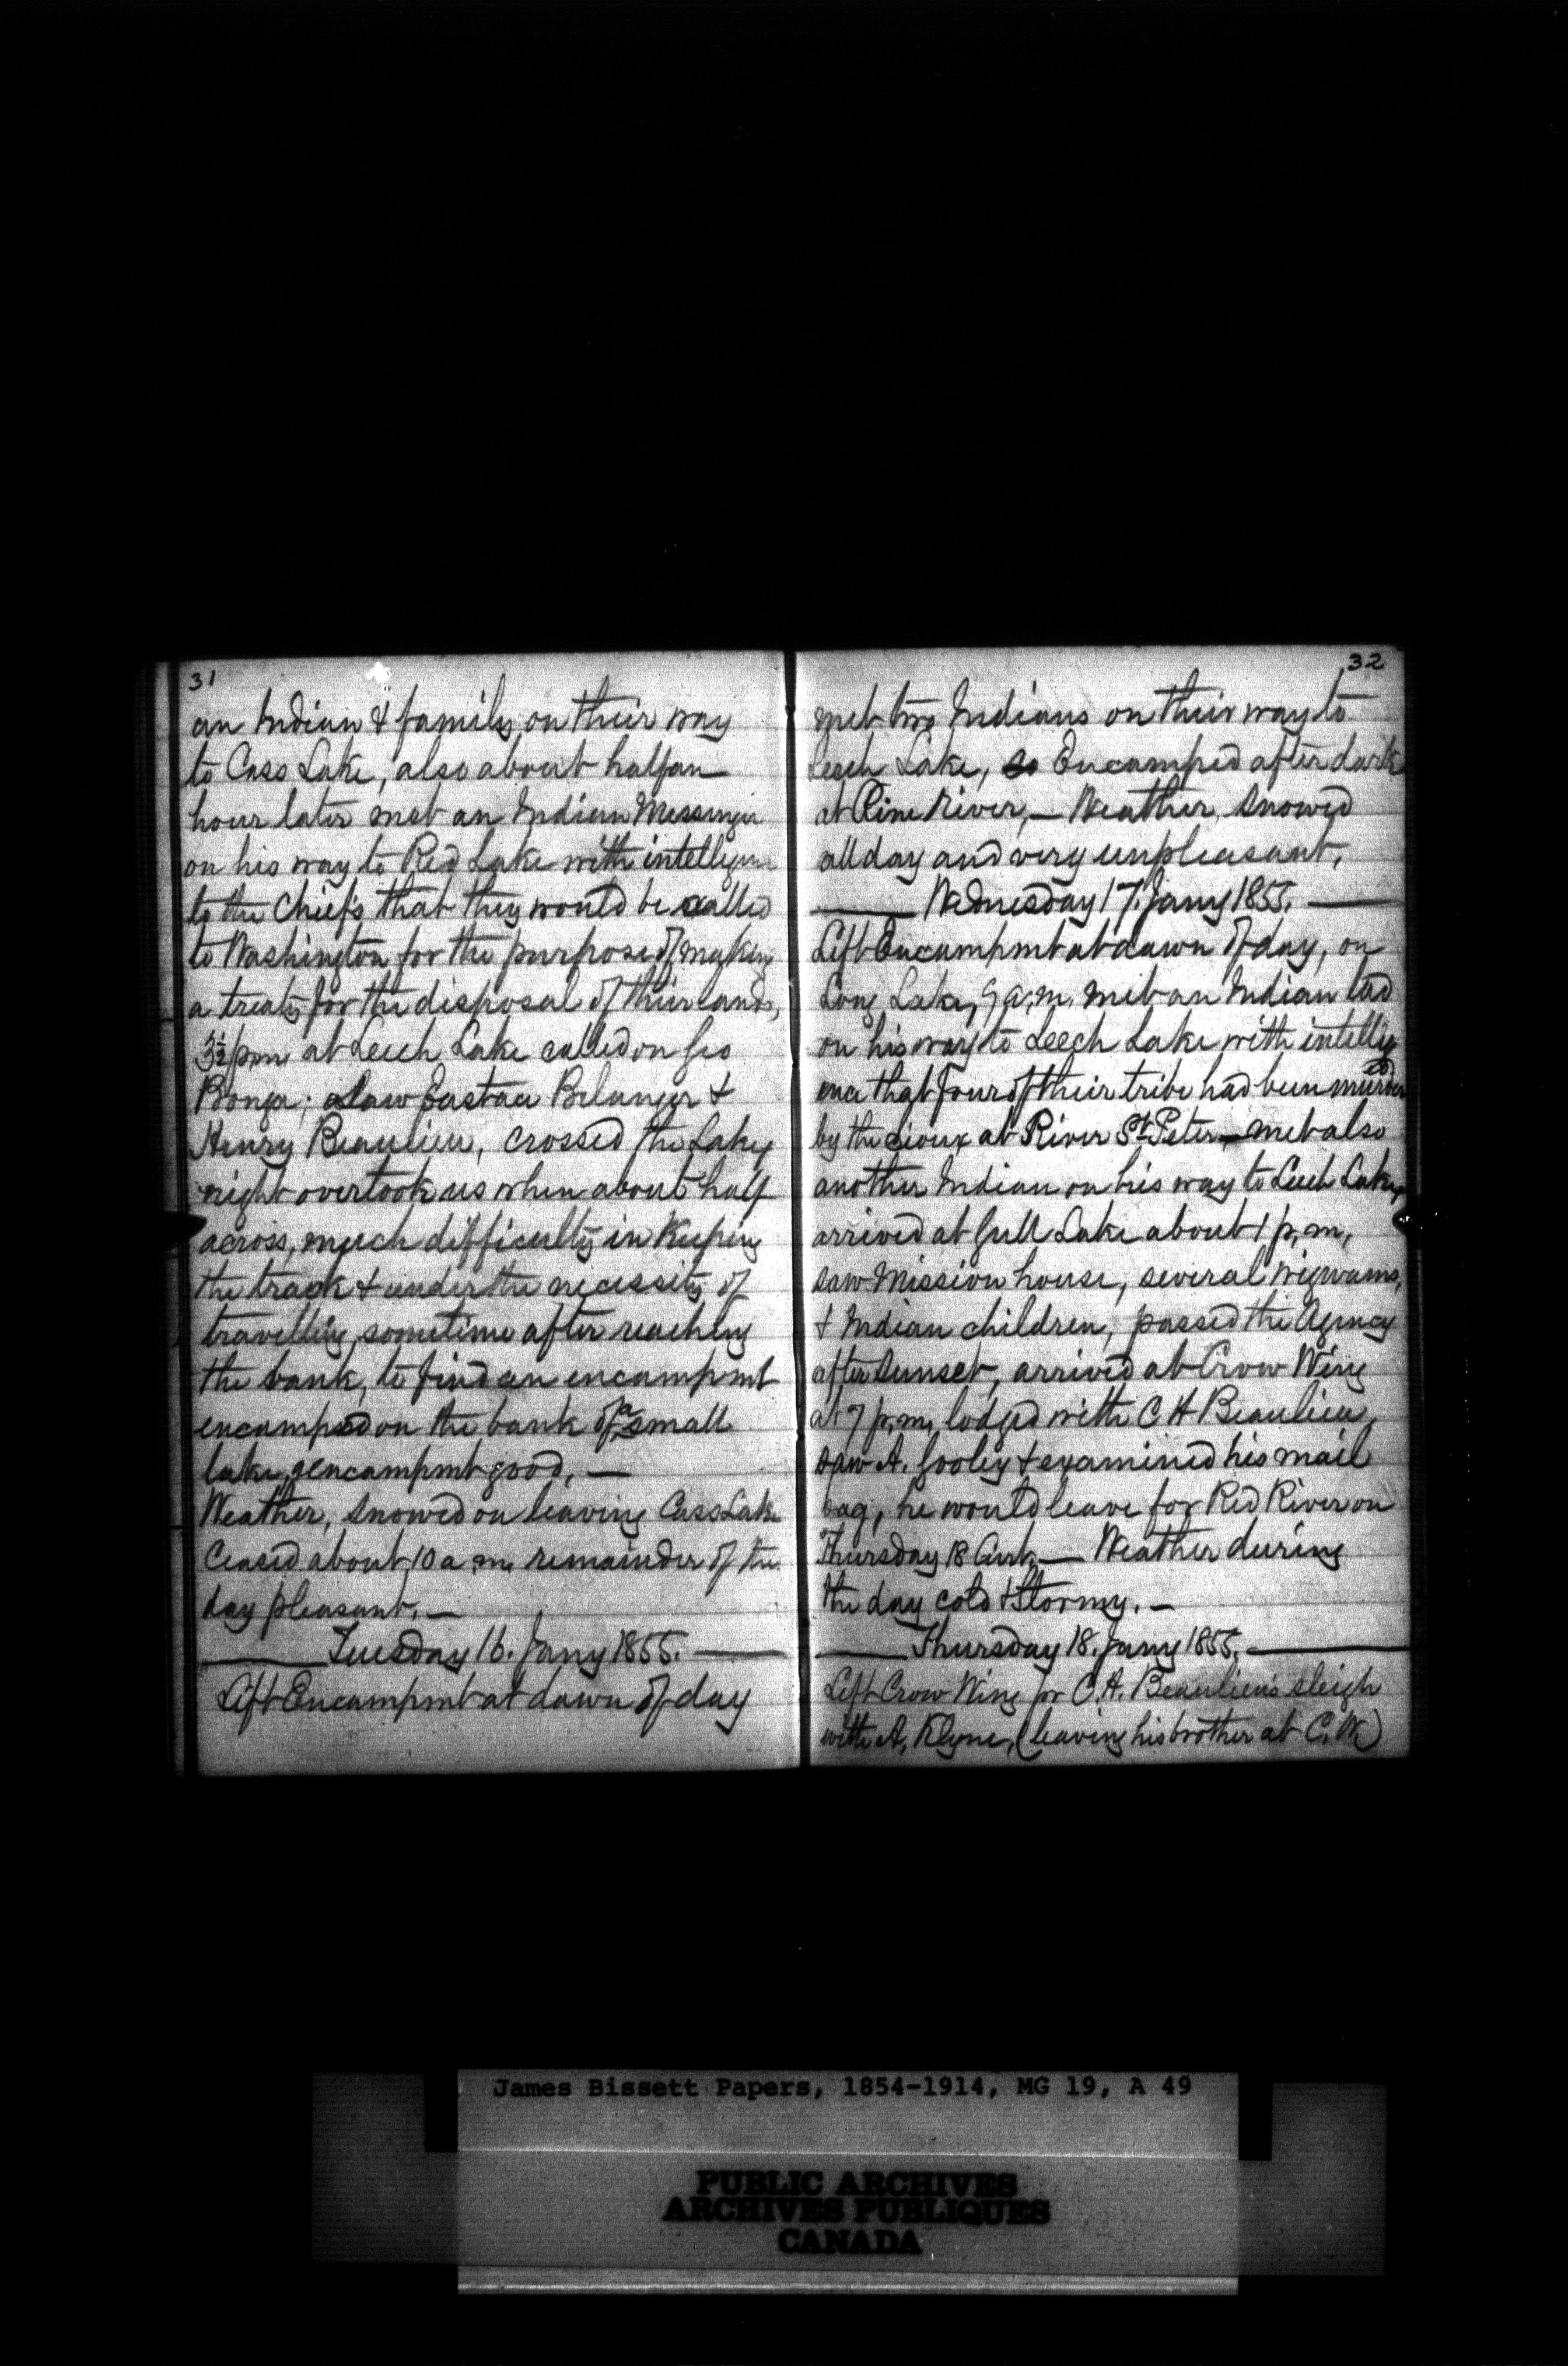 31
an Indian & family on their way
to Cass Lake, also about half an
hour later met an Indian Messenger
on his way to Red Lake with intelligence
to the Chiefs that they would be called
to Washington for the purpose of making
a treaty for the disposal of their lands,
3½ p.m. at Leech Lake called on Geo
Bonga; saw Eustace Belanger &
Henry Beaulieu, crossed the Lake,
night overtook us when about half
across, much difficulty in Keeping
the track & under the necessity of
travelling, sometime after reaching
the bank, to find an encampmt
encamped on the bank of a small
lake, encampmt good, —
Weather, snowed on leaving Cass Lake
Ceased about 10 a.m. remainder of the
day pleasant. —
Tuesday 16. Jany 1855.
Left Encampmt at dawn of day
32
met two Indians on their way to
Leech Lake, Encamped after dark
at Pine River, — Weather, snowed
all day and very unpleasant,
Wednesday 17. Jany 1855.
Left Encampmt at dawn of day, on
Long Lake, 9 a.m. met an Indian lad
on his way to Leech Lake with intellig
ence that four of their tribe had been murdered
by the Sioux at River St. Peter, — met also
another Indian on his way to Leech Lake,
arrived at Gull Lake about 1 p.m,
saw Mission house, several wigwams,
& Indian children, passed the Agency
after Sunset, arrived at Crow Wing
at 7 p.m, lodged with C H Beaulieu,
saw A. Gooley & examined his mail
bag, he would leave for Red River on
Thursday 18 Curt. — Weather during
the day cold & Stormy. —
Thursday 18. Jany 1855.
Left Crow Wing pr C. H. Beaulieu's sleigh
with A. Klyne, (leaving his brother at C. W.)
James Bissett Papers, 1854-1914, MG 19, A 49
PUBLIC ARCHIVES
ARCHIVES PUBLIQUES
CANADA